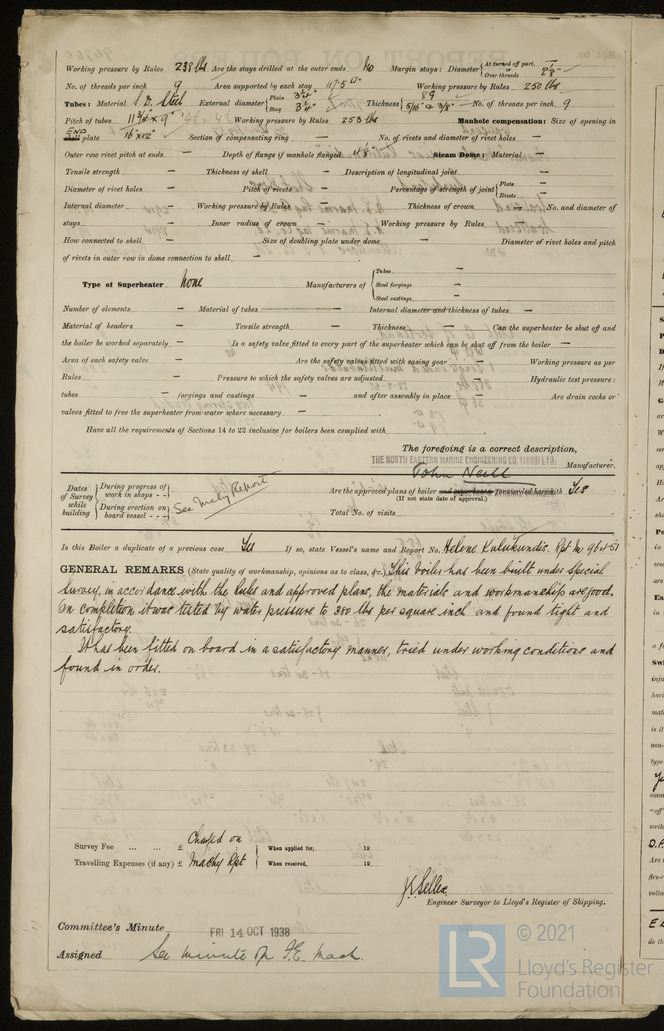 Working pressure by Rules 238 lbs Are the stays drilled at the outer ends No Margin stays: Diameter { At turned off part, or Over threads
No. of threads per inch 9 Area supported by each stay Working pressure by Rules 250 lbs
Tubes: Material S.D. Steel External diameter { Plain 3¼" Stay 3¼" Thickness { 5/16" & 3/8" No. of threads per inch 9
Pitch of tubes Working pressure by Rules 253 lbs Manhole compensation: Size of opening in
END shell plate 16" x 12" Section of compensating ring - No. of rivets and diameter of rivet holes -
Outer row rivet pitch at ends - Depth of flange if manhole flanged Steam Dome: Material -
Tensile strength - Thickness of shell - Description of longitudinal joint -
Diameter of rivet holes - Pitch of rivets - Percentage of strength of joint { Plate - Rivets -
Internal diameter - Working pressure by Rules - Thickness of crown - No. and diameter of
stays - Inner radius of crown - Working pressure by Rules -
How connected to shell - Size of doubling plate under dome - Diameter of rivet holes and pitch
of rivets in outer row in dome connection to shell -
Type of Superheater None Manufacturers of { Tubes - Steel forgings - Steel castings -
Number of elements - Material of tubes - Internal diameter and thickness of tubes -
Material of headers - Tensile strength - Thickness - Can the superheater be shut off and
the boiler be worked separately - Is a safety valve fitted to every part of the superheater which can be shut off from the boiler -
Area of each safety valve - Are the safety valves fitted with easing gear - Working pressure as per
Rules - Pressure to which the safety valves are adjusted - Hydraulic test pressure:
tubes - forgings and castings - and after assembly in place - Are drain cocks or
valves fitted to free the superheater from water where necessary -
Have all the requirements of Sections 14 to 22 inclusive for boilers been complied with
The foregoing is a correct description,
THE NORTH EASTERN MARINE ENGINEERING CO. (1938) LTD.
John Neill Manufacturer.
Dates of Survey while building { During progress of work in shops - - During erection on board vessel - - - See Mchy Report
Are the approved plans of boiler and superheater forwarded herewith Yes
(If not state date of approval.)
Total No. of visits
Is this Boiler a duplicate of a previous case Yes If so, state Vessel's name and Report No. Helene Kulukundis. Rpt No 96451
GENERAL REMARKS (State quality of workmanship, opinions as to class, &c.) This boiler has been built under Special
Survey, in accordance with the Rules and approved plans, the materials and workmanship are good.
On completion it was tested by water pressure to 380 lbs per square inch and found tight and
satisfactory.
It has been fitted on board in a satisfactory manner, tried under working conditions and
found in order.
Survey Fee ... ... £ Charged on { When applied for, 19
Travelling Expenses (if any) £ Machy Rpt { When received, 19
Engineer Surveyor to Lloyd's Register of Shipping.
Committee's Minute FRI 14 OCT 1938
Assigned See minute on F.E. Mach
LR © 2021
Lloyd's Register
Foundation